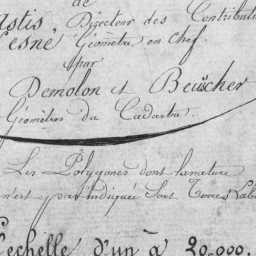 de
astis, Directeur des Contribut
Lesne Géomètre en Chef.
par
Demolon et Beuscher
Géomètres du Cadastre.
Les Polygones dont la nature
n'est pas indiquée Sont Terres Lab
l'echelle d'un à 20-000.